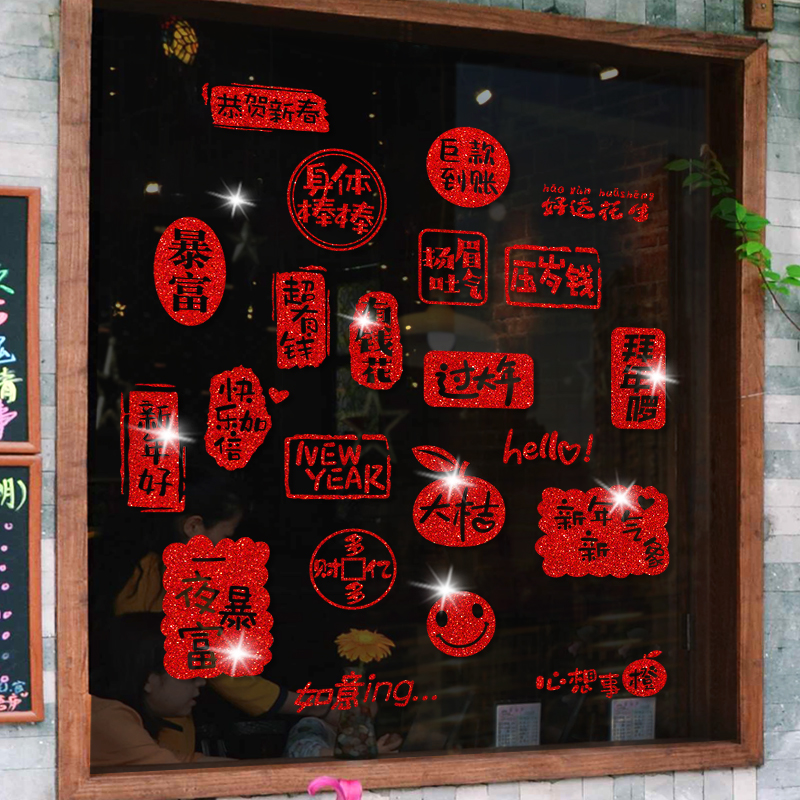 恭贺新春
身体
棒棒
巨款
到账
hǎo yùn huāshēng
好运花生
暴富
扬眉
吐气
压岁钱
超有钱
有钱花
过大年
拜年啰
新年好
快乐加倍
NEW
YEAR
hello!
大桔
新年
新气象
多财多亿
一夜暴富
如意ing...
心想事橙